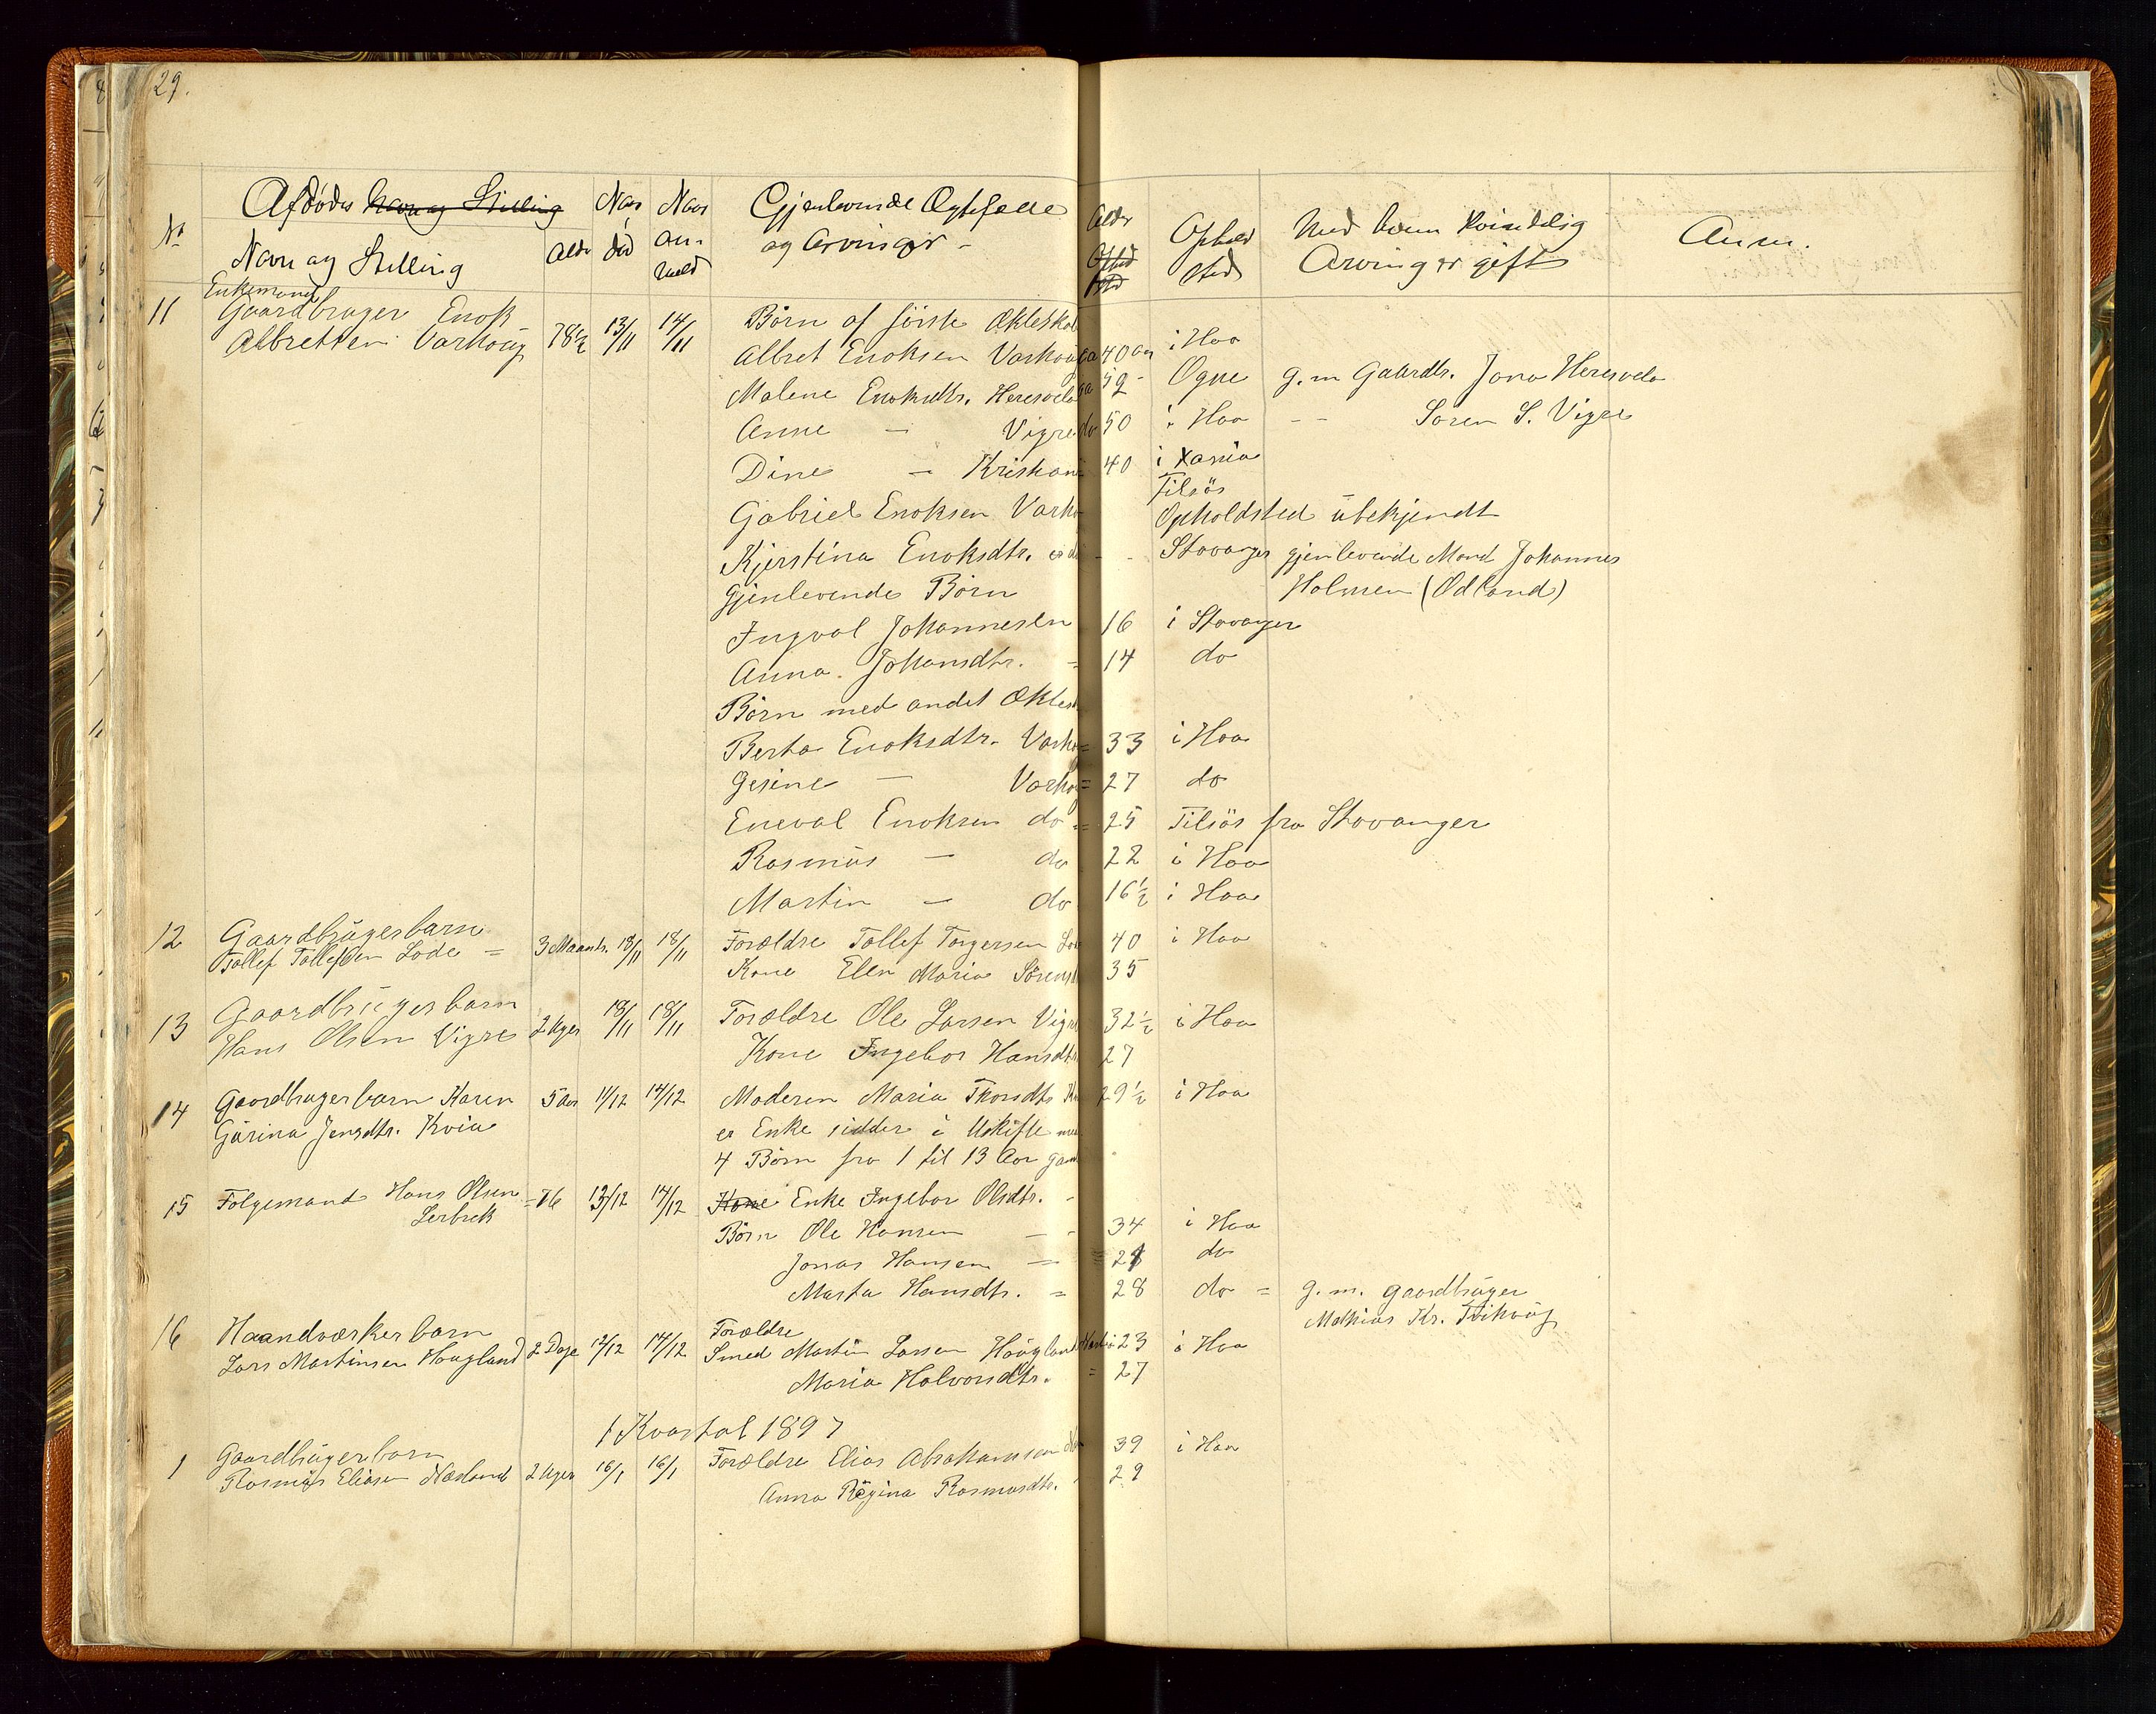 29.
No Afdødes Navn og Stilling Naar død Naar anmeldt Gjenlevende Ægtefælle og Arvinger Alder Opholdsted Med hvem kvindelig Arving er gift Anm.
Navn og Stilling Alder
Enkemand
11 Gaardbruger Enok Børn af første Ækteskab
Albretsen Varhoug 78½ 13/11 14/11 Albret Enoksen Varhoug 40 Aar i Haa
Malene Enoksdtr. Heresvela 52 - Ogne g. m Gaardbr. Jona Heresvela
Anne — Vigre 50 i Haa — Soren S. Vigre
Dine — Kristiania 40 i Xania
Gabriel Enoksen Varhoug Tilsös
Opholdsted übekjendt
Kjerstina Enoksdtr. - - Stavanger gjenlevende Mand Johannes
Gjenlevende Børn Holmen (Ødland)
Ingval Johannesen 16 i Stavanger
Anna Johansdtr. = 14 do
Børn med andet Æktesk
Berta Enoksdtr. Varho = 33 i Haa
Gesine — Varhoug = 27 do
Eneval Enoksen do = 25 Tilsös fra Stavanger
Rasmüs — do 22 i Haa
Martin — do 16½ i Haa
12 Gaardbrügerbarn
Tollef Tollefsen Lode = 3 Maan 18/11 18/11 Forældre Tollef Torgersen Lo 40 i Haa
Kone Elen Maria Sörensd 35
13 Gaardbrügerbarn
Hans Olsen Vigre 2 Uger 18/11 18/11 Forældre Ole Larsen Vigre 32½ i Haa
Kone Ingebor Hansdtr 27
14 Gaardbrugerbarn Karen 5 Aar 11/12 14/12 Moderen Maria Thorsdtr 29½ i Haa
Gürina Jensdtr. Kvia er Enke sidder i Uskifte med
4 Børn fra 1 til 13 Aar gam
15 Følgemand Hans Olsen - 76 13/12 14/12 Kone Enke Ingebor Olsdtr. -
Lerbrek Børn Ole Hansen — - 34 i Haa
Jonas Hansen — = 21 do
Marta Hansdtr. = 28 do = g. m. gaardbrüger
Mathias Kr. Tvihoug
16 Haandværkerbarn Forældre
Lars Martinsen Hougland 2 Dage 12/12 14/12 Smed Martin Larsen Hougland 23 i Haa
Maria Halvorsdtr. = 27
1 Kvartal 1897
1 Gaardbrügerbarn
Rasmus Eliasen Næsland 2 Uger 16/1 16/1 Forældre Elias Abrahamsen 39 i Haa
Anna Regina Rasmusdtr. 29